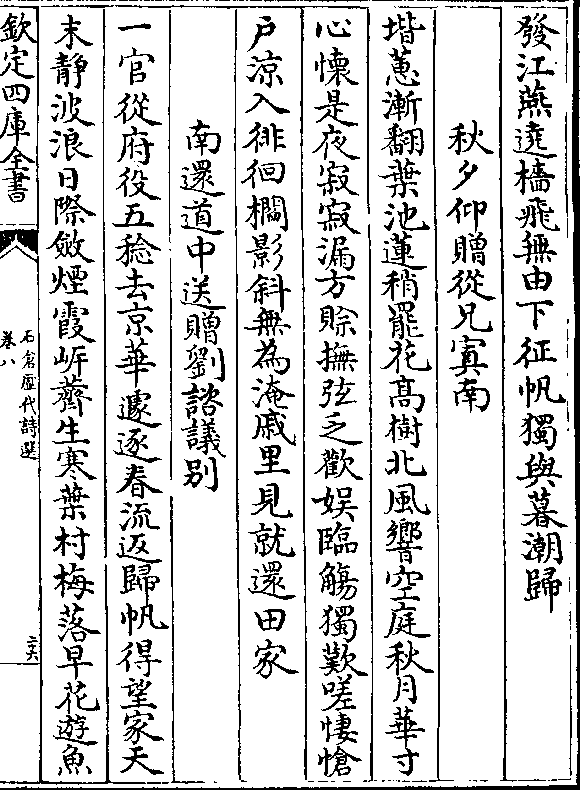 發江燕遶檣飛無由下征帆獨與暮潮歸
秋夕仰贈從兄寘南
堦蕙漸翻葉池蓮稍罷花髙樹北風響空庭秋月華寸
心懐是夜寂寂漏方賖撫弦乏歡娱臨觴獨歎嗟悽愴
户凉入徘徊櫚影斜無為淹戚里見就還田家
南還道中送贈劉諮議别
一官從府役五稔去京華遽逐春流返歸帆得望家天
末静波浪日際斂煙霞㟁薺生寒葉村梅落早花遊魚
欽定四庫全書
石倉歴代詩選
巻八
二六